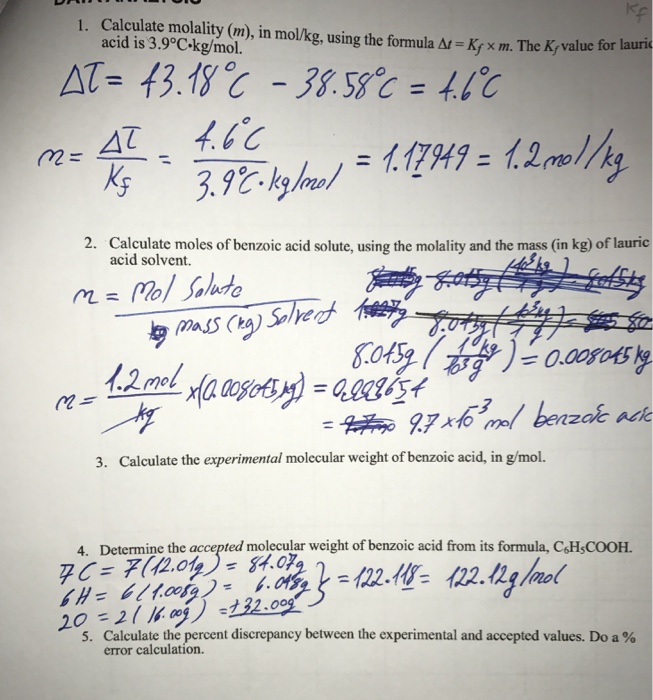 Kf
1. Calculate molality (m), in mol/kg, using the formula Δt = Kf × m. The Kf value for lauric
acid is 3.9°C·kg/mol.
ΔT = 43.18°C - 38.58°C = 4.6°C
m = ΔT / Kf = 4.6°C / 3.9°C·kg/mol = 1.17949 = 1.2 mol/kg
2. Calculate moles of benzoic acid solute, using the molality and the mass (in kg) of lauric
acid solvent.
m = mol Solute / mass (kg) Solvent
8.045g (1 kg / 10³ g) = 0.008045 kg
m = 1.2 mol / kg × (0.008045 kg) = 0.009654
= 9.7 × 10⁻³ mol benzoic acid
3. Calculate the experimental molecular weight of benzoic acid, in g/mol.
4. Determine the accepted molecular weight of benzoic acid from its formula, C₆H₅COOH.
7C = 7(12.01g) = 84.07g
6H = 6(1.008g) = 6.048g } = 122.118 = 122.12g/mol
2O = 2(16.00g) = +32.00g
5. Calculate the percent discrepancy between the experimental and accepted values. Do a %
error calculation.